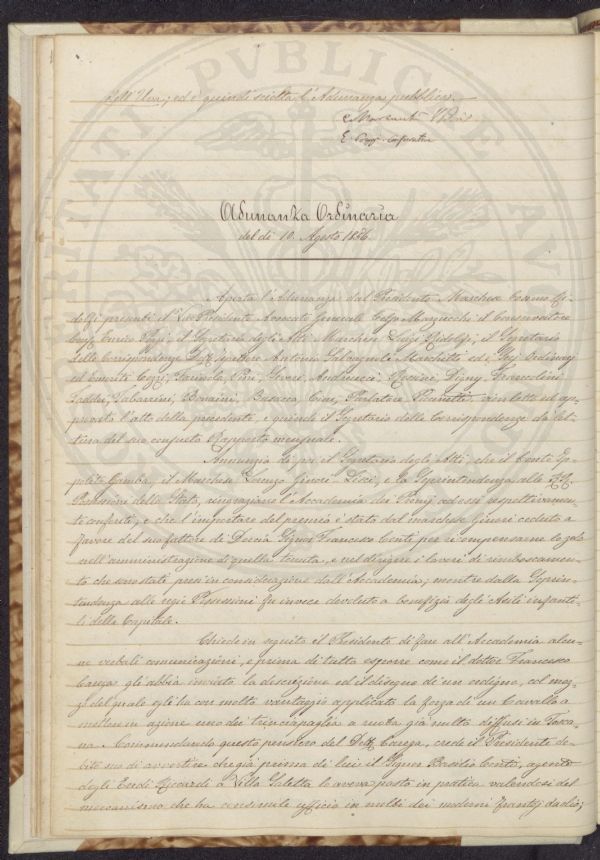 dell'Uva; ed è quindi sciolta l'Adunanza pubblica.
E. Poggi
Adunanza Ordinaria
del dì 10. Agosto 1856.
Aperta l'Adunanza dal Presidente Marchese Cosimo Ri-
dolfi presenti il Vice Presidente Avvocato Generale Celso Marzucchi il Conservatore
Enrico Poggi, il Segretario degli Atti Marchese Luigi Ridolfi, il Segretario
delle Corrispondenze Dott. Antonio Salvagnoli Marchetti ed i Socj Ordinarj
ed Emeriti
Taddei, Calamini, Busacca, Cini, Parlatore vien letto ed ap-
provato l'atto della precedente, e quindi il Segretario delle Corrispondenze dà let-
tura del suo consueto Rapporto mensuale.
Annunzia dopo il Segretario degli Atti, che il Conte Ip-
polito Gamba, il Marchese Lorenzo Ginori Lisci, e la Soprintendenza alle RR.
Possessioni dello Stato, ringraziano l'Accademia dei Premj ad essi respettivamen-
te conferiti, e che l'importare del premio è stato dal marchese Ginori ceduto a
favore del suo fattore di Doccia Signor Francesco Conti per ricompensarne lo zelo
nell'amministrazione di quella tenuta, e nel dirigere i lavori di rimboscamen-
to che sono stati presi in considerazione dall'Accademia; mentre dalla Soprin-
tendenza alle regie Possessioni fu invece devoluto a benefizio degli Asili infanti-
li della Capitale.
Chiede in seguito il Presidente di fare all'Accademia alcu-
ne verbali comunicazioni, e prima di tutto espone come il dottor Francesco
Carega gli abbia inviata la descrizione ed il disegno di un ordigno, col mez-
zo del quale egli ha con molto vantaggio applicato la forza di un Cavallo a
mettere in azione uno dei trinciapaglia a ruota già molto diffusi in Tosca-
na. Commendando questo pensiero del Dott. Carega, crede il Presidente de-
bito suo di avvertire che già prima di lui il Signor Basilio Conti, agente
degli Eredi Riccardi a Villa Saletta lo aveva posto in pratica valendosi del
meccanismo che ha consimile ufficio in molti dei moderni frantoj da olio;